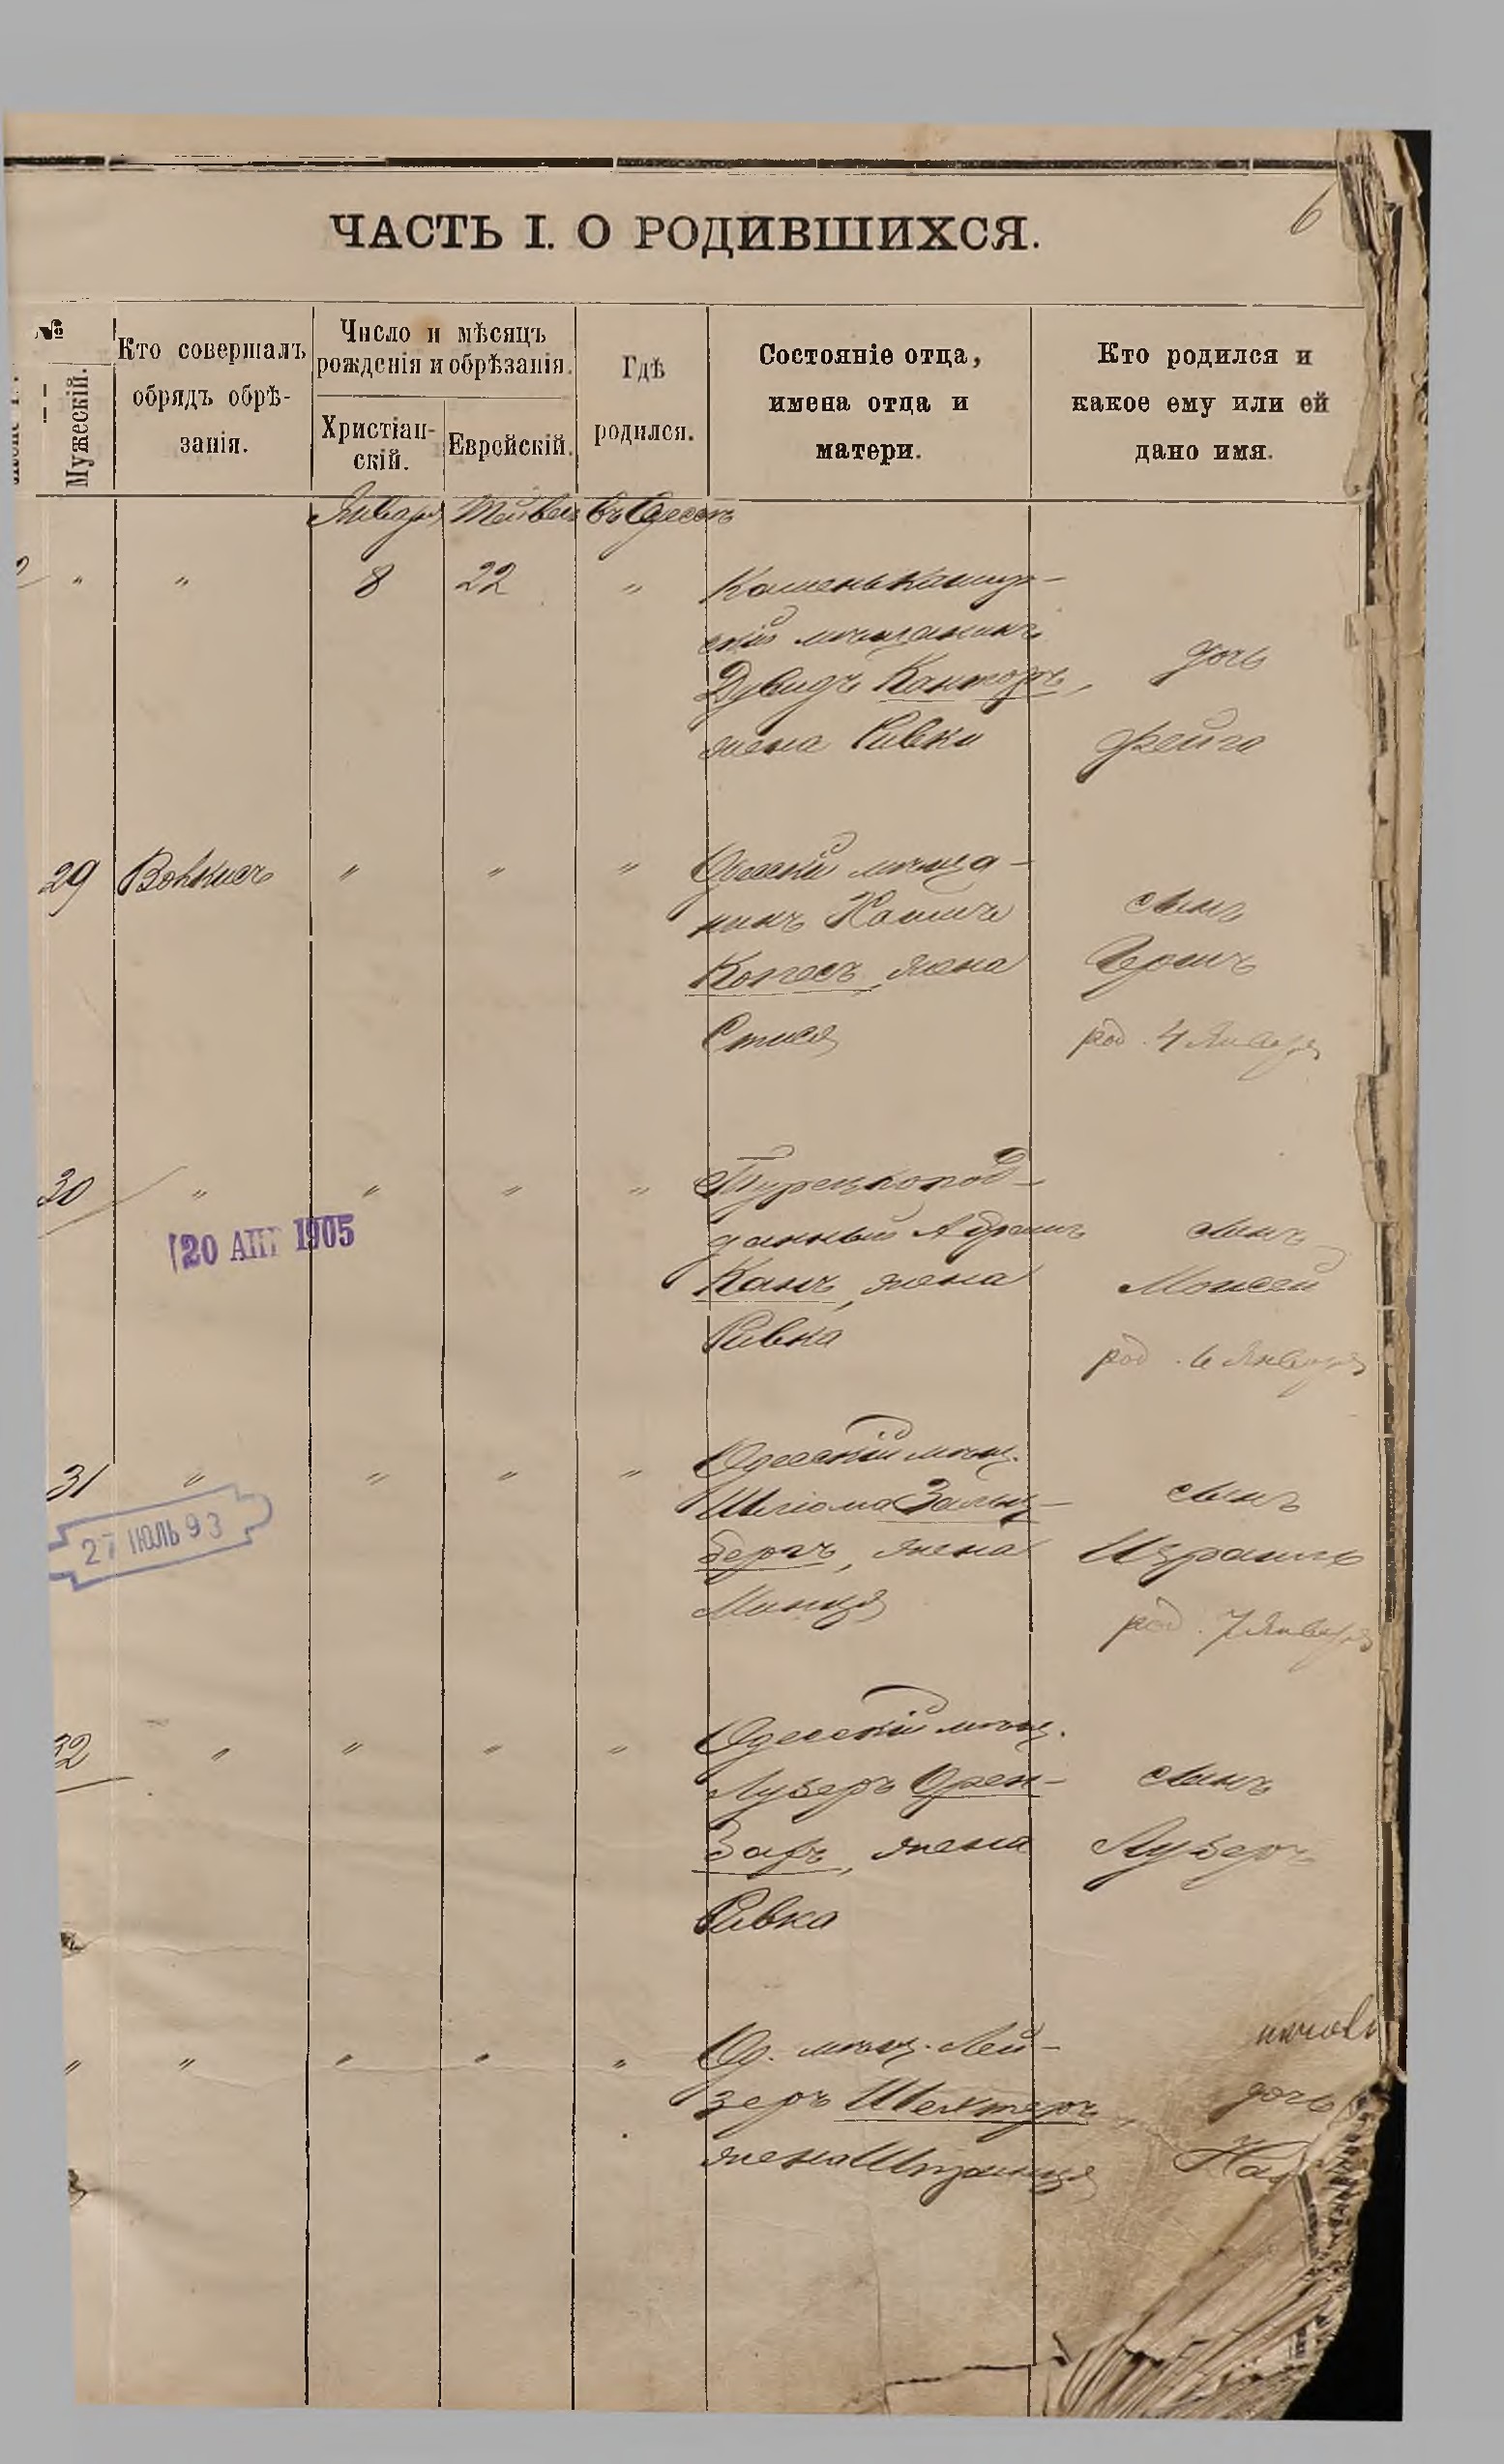 6
ЧАСТЬ I. О РОДИВШИХСЯ.
№
Мужескій.
Кто совершалъ
обрядъ обрѣ-
занія.
Число и мѣсяцъ
рожденія и обрѣзанія.
Христіан-
скій.
Еврейскій.
Гдѣ
родился.
Состояніе отца,
имена отца и
матери.
Кто родился и
какое ему или ей
дано имя.
Января Тейвесъ въ Одессѣ
" " 8 22 " Каменькашир-
скій мѣщанинъ
Дувидъ Канторъ,
жена Ривка
дочь
Фейга
29 " " " Одесскій мѣща-
нинъ
Копесъ, жена
сынъ
Гершъ
род. 4 Января
30 " " " " Турецкопод-
данный Абрамъ
Канъ, жена
Ривка
сынъ
Моисей
род. 6 Января
20 АПР 1905
31 " " " " Одесскій мѣщ.
Шліома Зальц-
бергъ, жена
Манця
сынъ
Израиль
род. 7 Января
27 ІЮЛЬ 93
32 " " " " Одесскій мѣщ.
Лузеръ Орен-
заръ, жена
Ривка
сынъ
Лузеръ
" " " " " Од. мѣщ. Лей-
зеръ Шехтеръ,
жена Шпринця
дочь